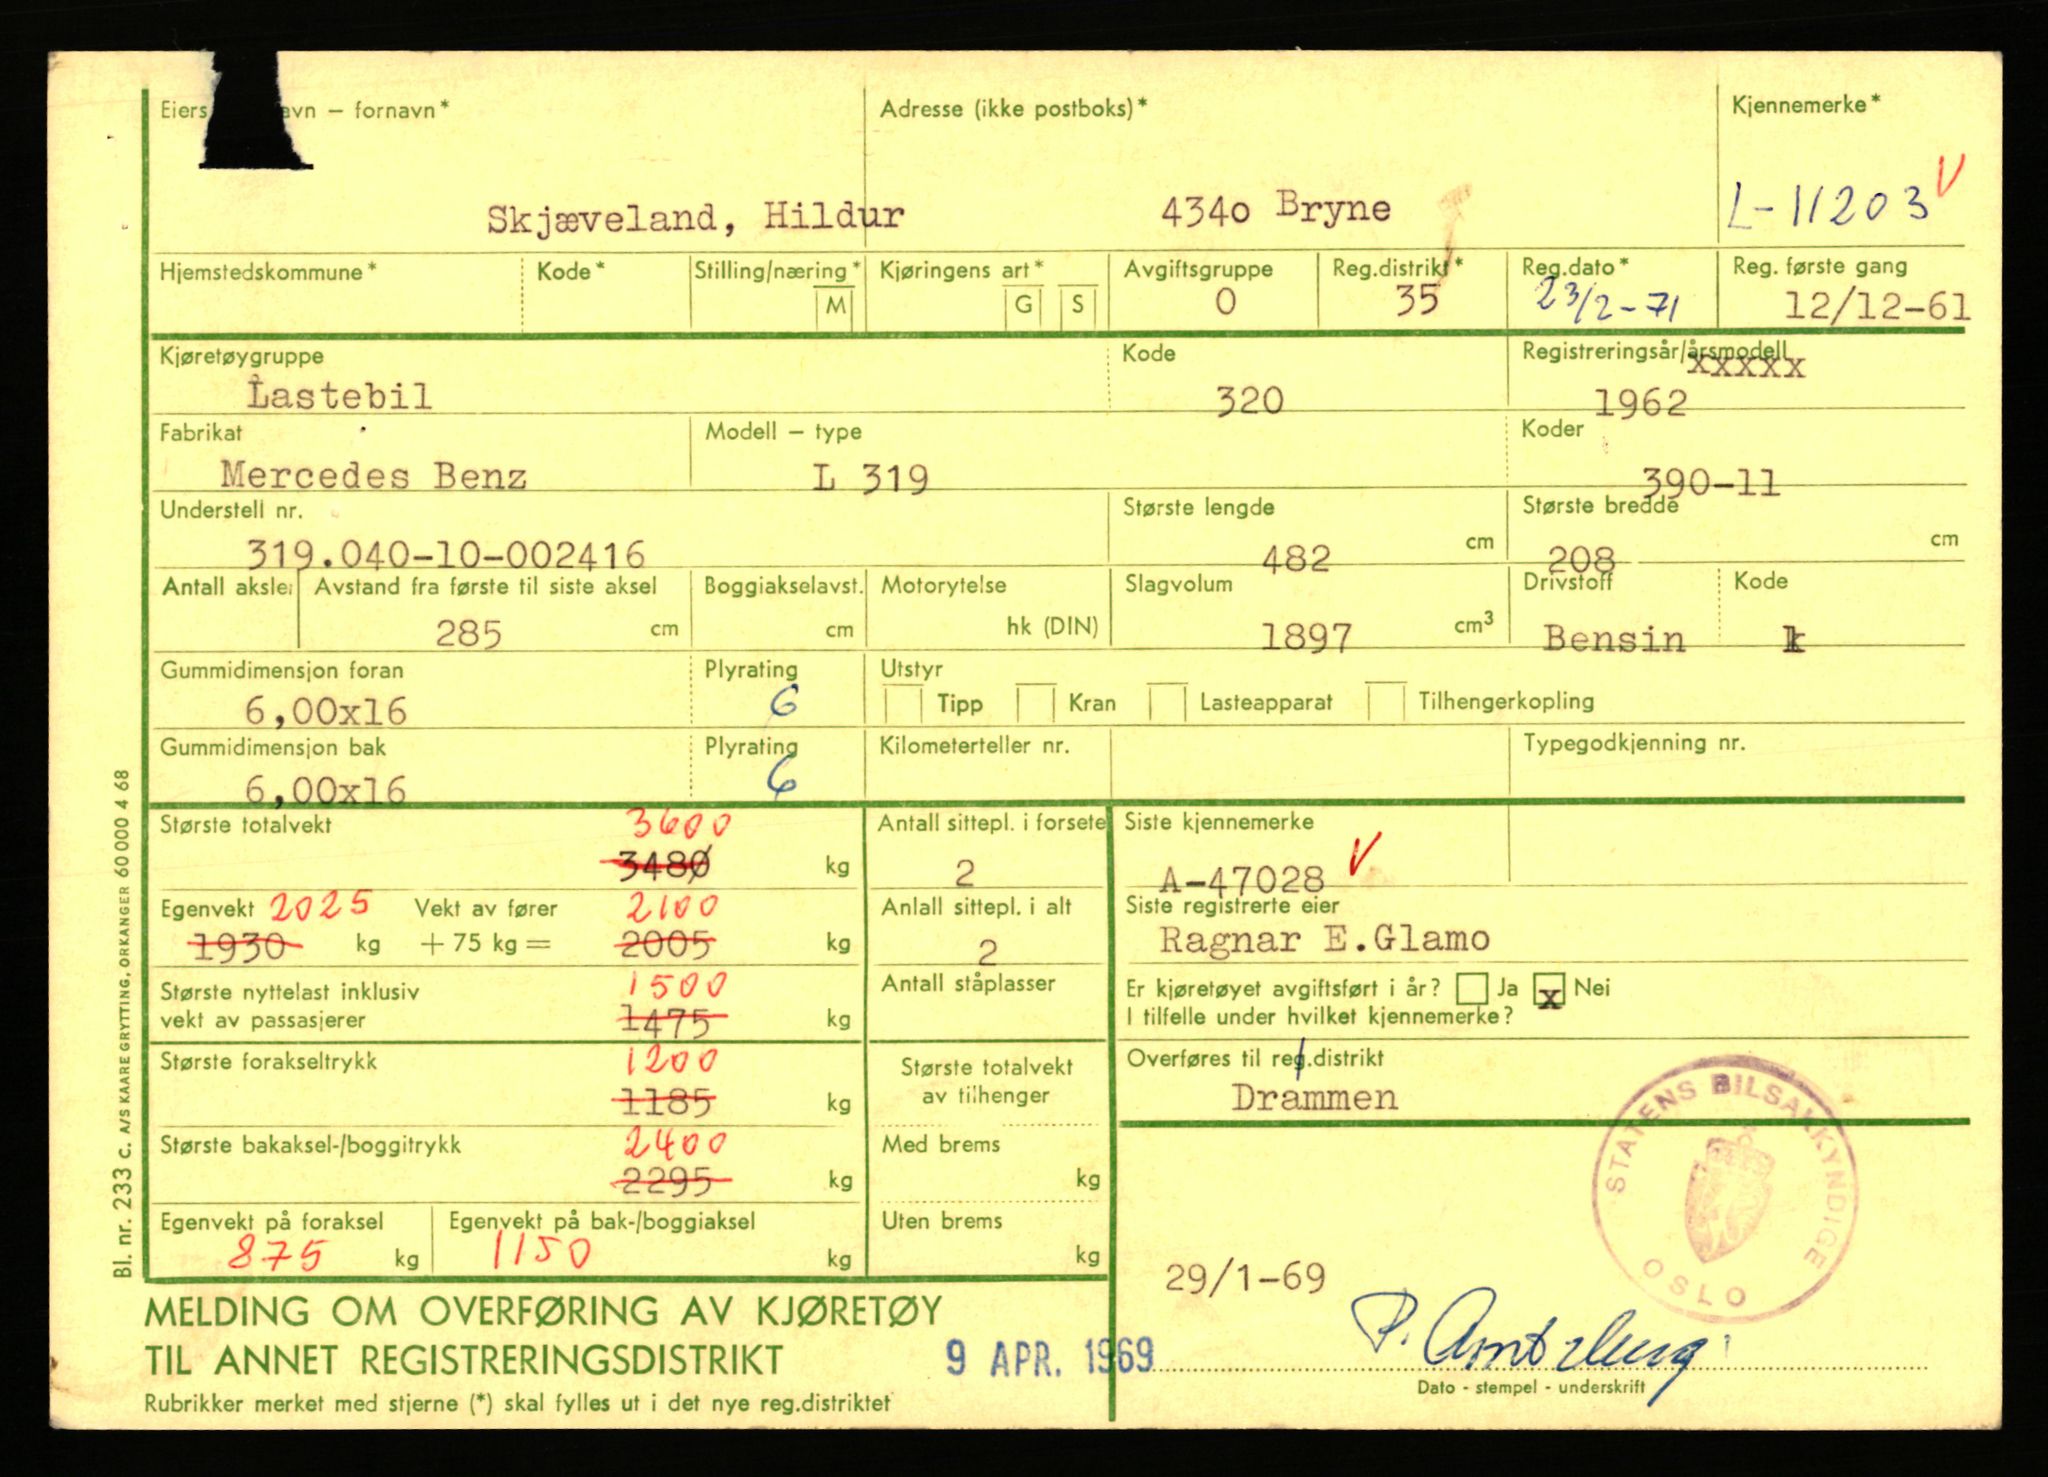 Eiers avn – fornavn* Adresse (ikke postboks)* Kjennemerke*
Skjæveland, Hildur 4340 Bryne L-11203 V
Hjemstedskommune* Kode* Stilling/næring* Kjøringens art* Avgiftsgruppe Reg.distrikt* Reg.dato* Reg. første gang
M G S 0 35 23/2-71 12/12-61
Kjøretøygruppe Kode Registreringsår/årsmodell
xxxxx
Lastebil 320 1962
Fabrikat Modell – type Koder
Mercedes Benz L 319 390-11
Understell nr. Største lengde Største bredde
319.040-10-002416 482 cm 208 cm
Antall aksler Avstand fra første til siste aksel Boggiakselavst. Motorytelse Slagvolum Drivstoff Kode
285 cm cm hk (DIN) 1897 cm3 Bensin
Gummidimensjon foran Plyrating Utstyr
6,00x16 6 Tipp Kran Lasteapparat Tilhengerkopling
Gummidimensjon bak Plyrating Kilometerteller nr. Typegodkjenning nr.
6,00x16 6
Største totalvekt 3600 Antall sittepl. i forsete Siste kjennemerke
3480 kg 2 A-47028 V
Egenvekt 2025 Vekt av fører 2100 Anlall sittepl. i alt Siste registrerte eier
1930 kg + 75 kg = 2005 kg 2 Ragnar E.Glamo
Største nyttelast inklusiv 1500 Antall ståplasser Er kjøretøyet avgiftsført i år? Ja x Nei
vekt av passasjerer 1475 kg I tilfelle under hvilket kjennemerke?
Største forakseltrykk 1200 Største totalvekt Overføres til reg.distrikt
1185 kg av tilhenger Drammen
Største bakaksel-/boggitrykk 2400 Med brems
2295 kg kg
Egenvekt på foraksel Egenvekt på bak-/boggiaksel Uten brems
875 kg 1150 kg kg
STATENS BILSAKKYNDIGE
OSLO
29/1-69
MELDING OM OVERFØRING AV KJØRETØY
TIL ANNET REGISTRERINGSDISTRIKT 9 APR. 1969
Dato - stempel - underskrift
Rubrikker merket med stjerne (*) skal fylles ut i det nye reg.distriktet
Bl. nr. 233 c. A/S KAARE GRYTTING, ORKANGER 60 000 4 68